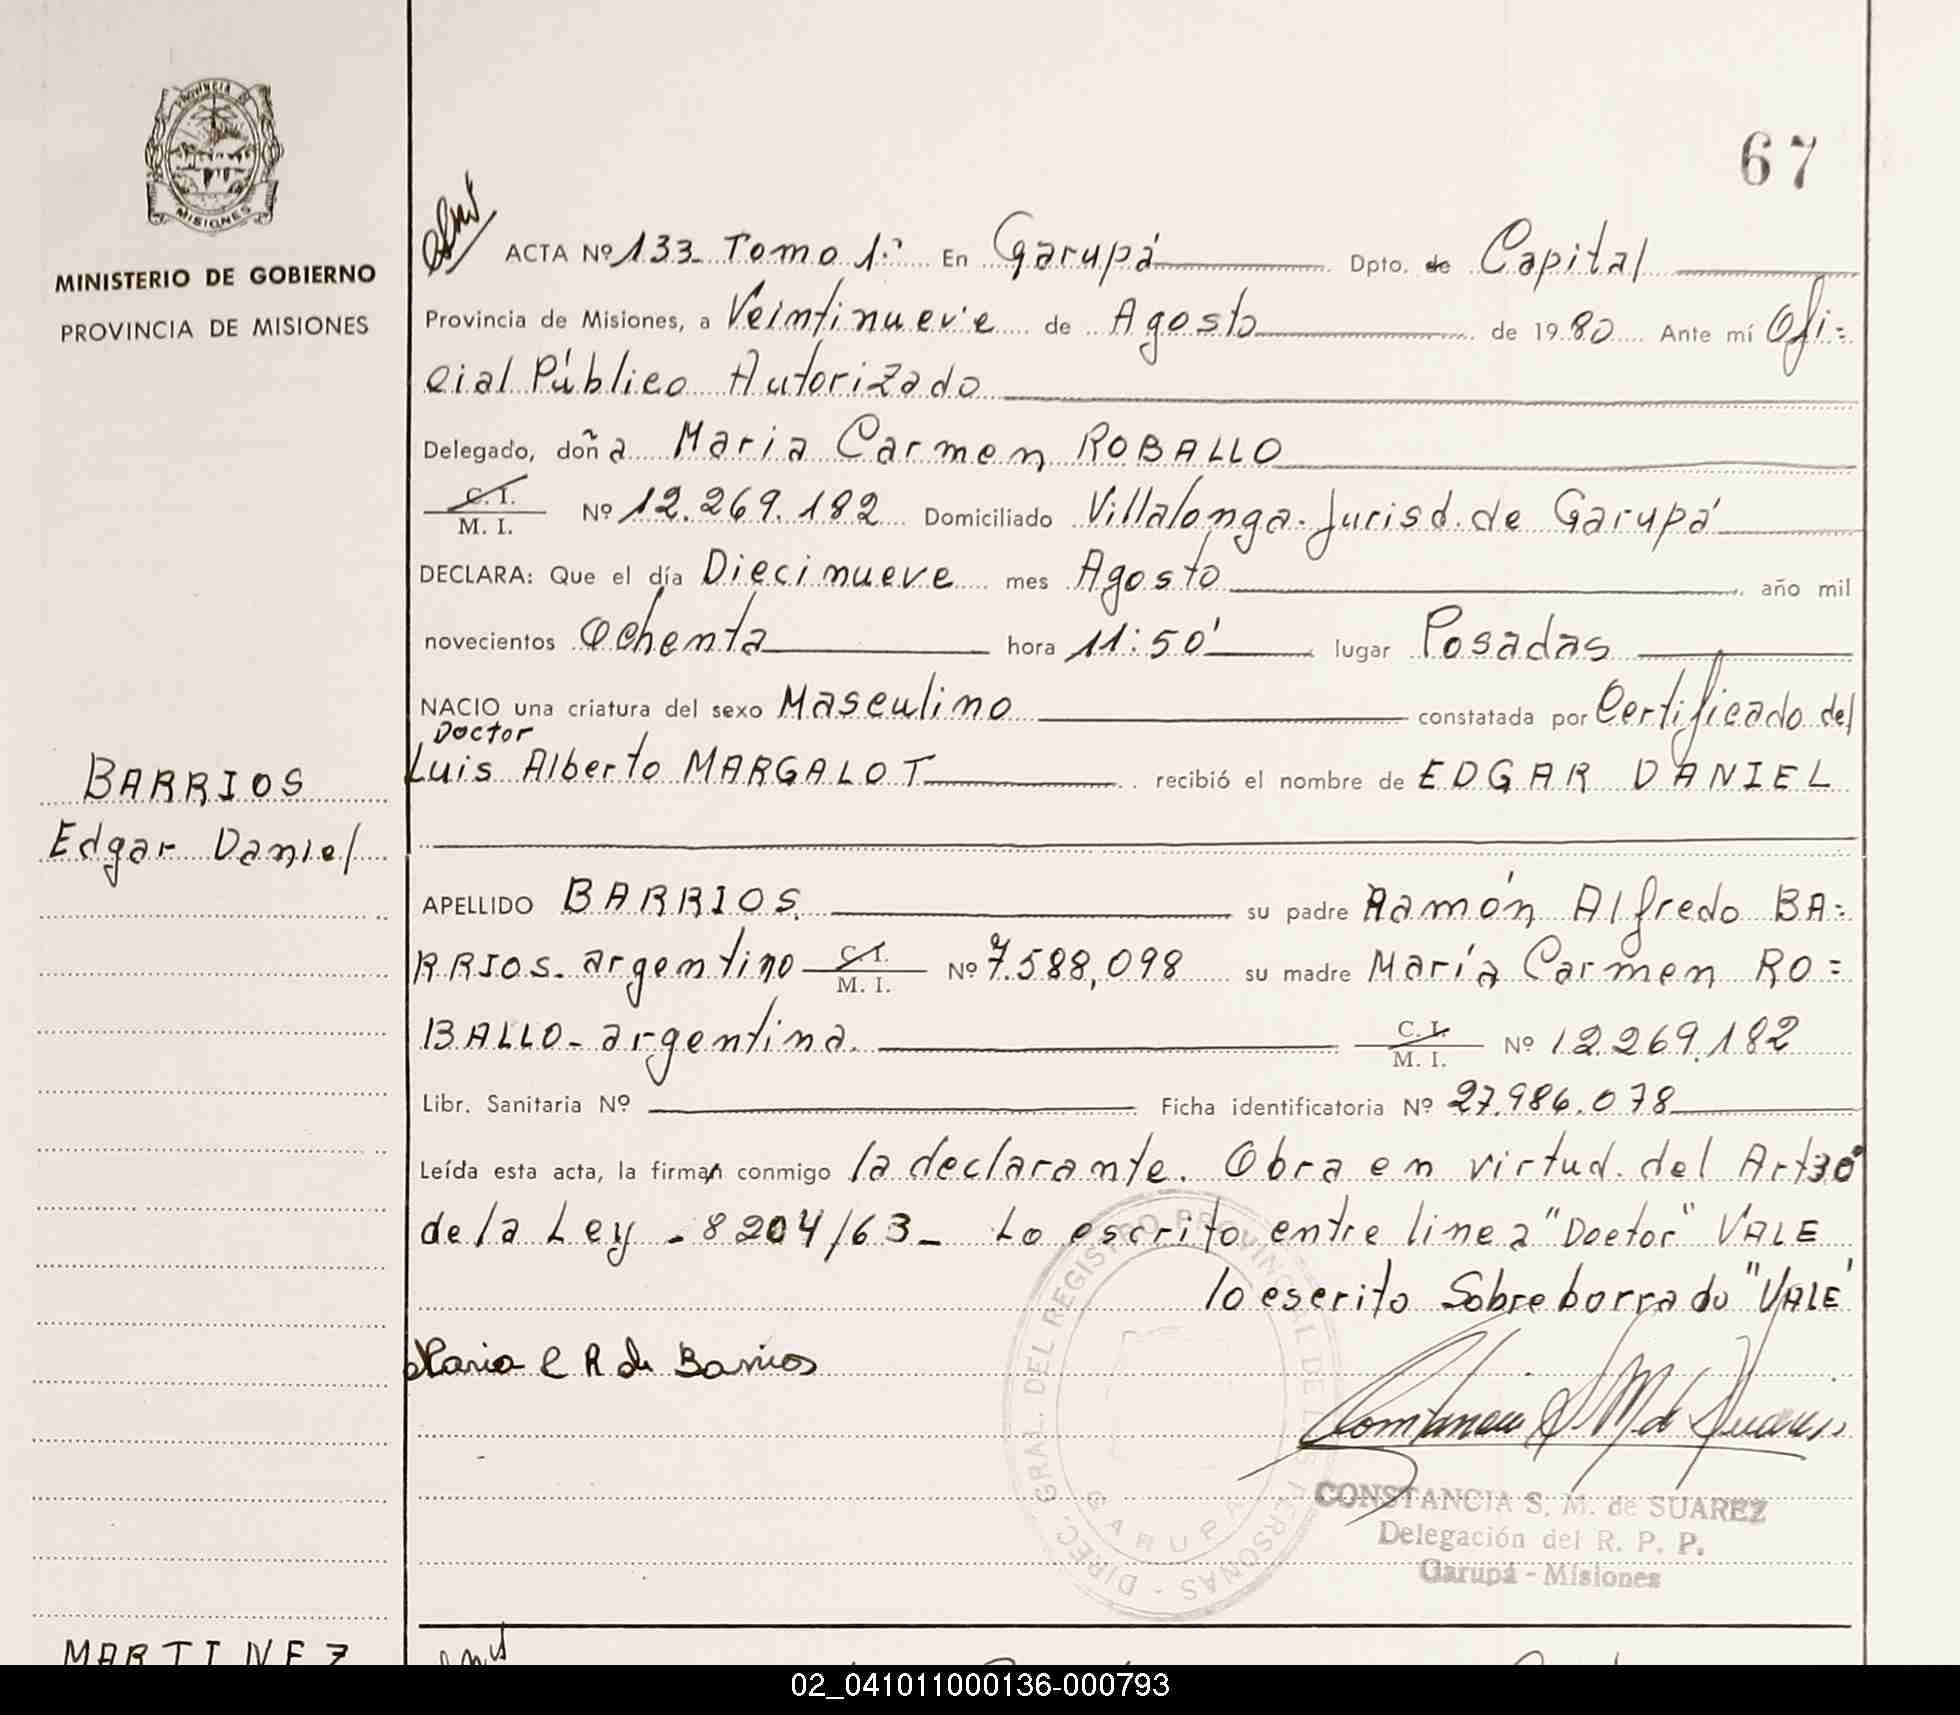 PROVINCIA DE
MISIONES
MINISTERIO DE GOBIERNO
PROVINCIA DE MISIONES
67
ACTA Nº 133- Tomo 1º En Garupá Dpto. de Capital
Provincia de Misiones, a Veintinueve de Agosto de 1980 Ante mí Ofi=
cial Público Autorizado
Delegado, doña Maria Carmen ROBALLO
C. I.
M. I. Nº 12.269.182 Domiciliado Villalonga- Jurisd. de Garupá
DECLARA: Que el día Diecinueve mes Agosto año mil
novecientos Ochenta hora 11:50' lugar Posadas
NACIO una criatura del sexo Masculino constatada por Certificado del
Doctor
Luis Alberto MARGALOT recibió el nombre de EDGAR DANIEL
BARRIOS
Edgar Daniel
APELLIDO BARRIOS. su padre Ramón Alfredo BA=
RRIOS- argentino C. I. M. I. Nº 7.588,098 su madre María Carmen RO=
BALLO- argentina. C. I. M. I. Nº 12.269.182
Libr. Sanitaria Nº Ficha identificatoria Nº 27.986.078
Leída esta acta, la firman conmigo la declarante. Obra en virtud del Art 30º
de la Ley - 8204/63- Lo escrito entre linea "Doctor" VALE
lo escrito Sobreborrado "VALE'
Maria C R de Barrios
Constancia S M de Suarez
DIREC. GRAL. DEL REGISTRO PROVINCIAL DE LAS PERSONAS -
GARUPA
CONSTANCIA S. M. de SUAREZ
Delegación del R. P. P.
Garupá - Misiones
MARTINEZ
02_041011000136-000793